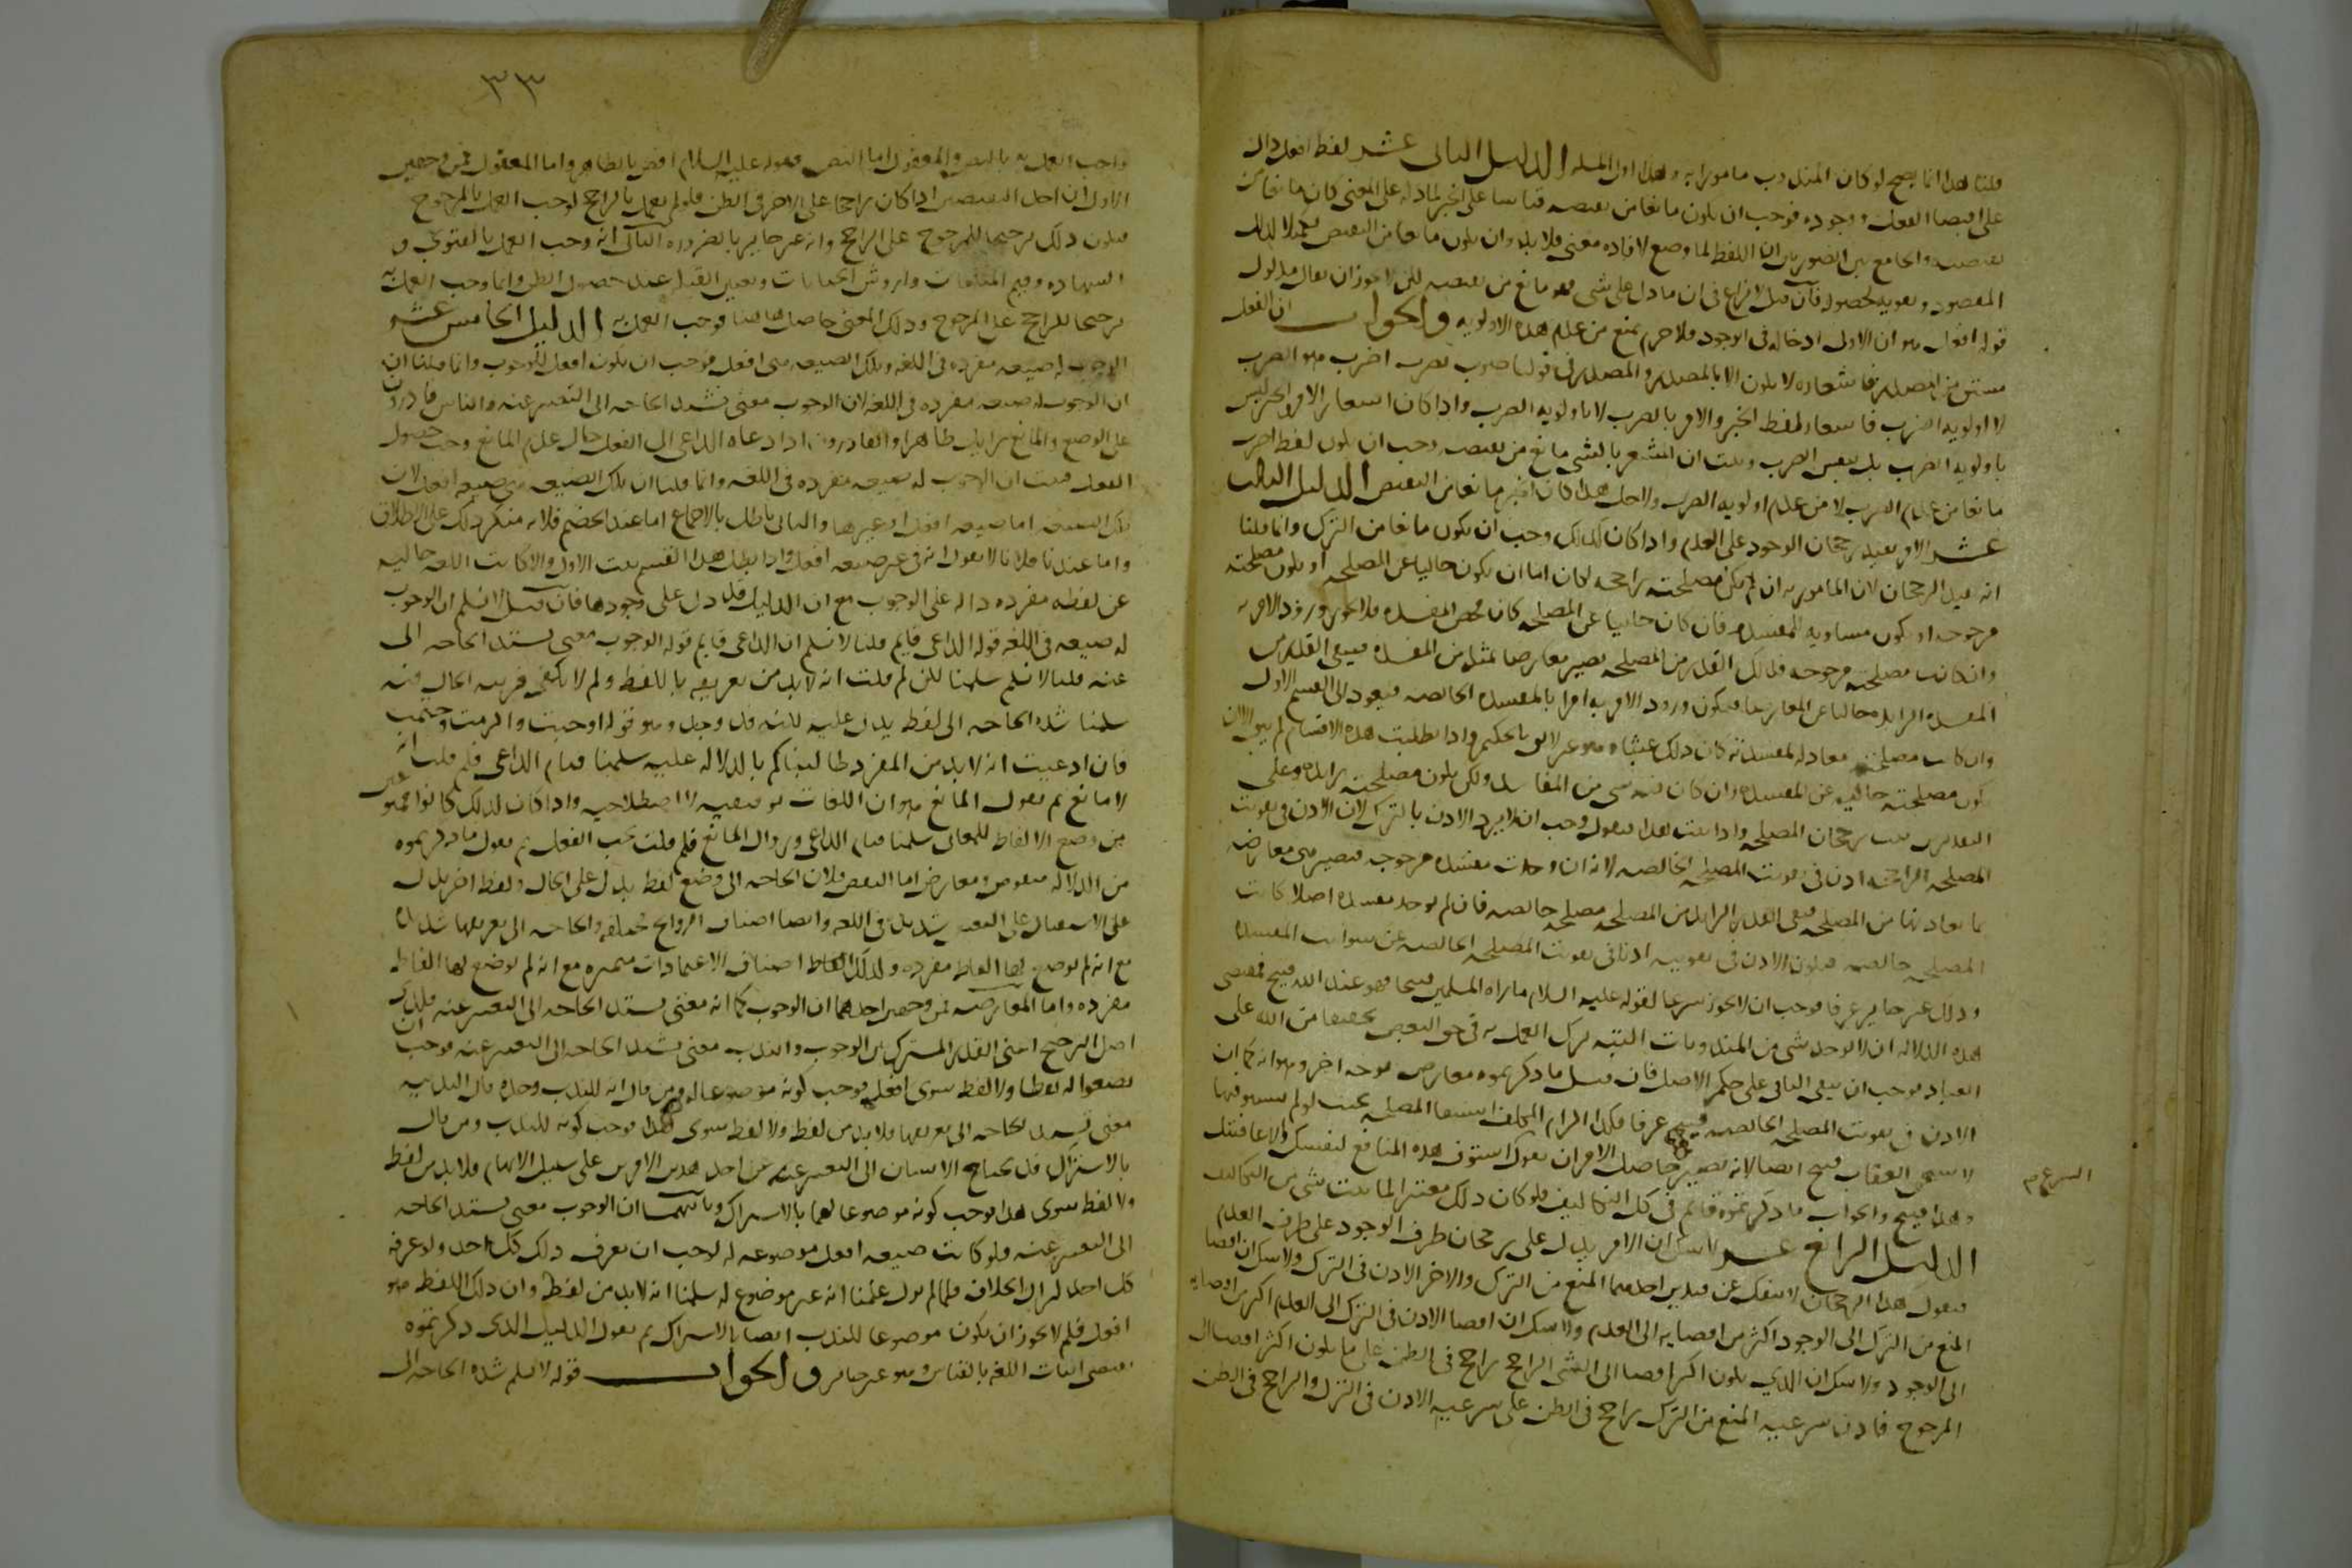 قلنا هذا انما يصح لو كان المندوب مامورا به وهذا اول المسله الدليل الثاني عشر لفظ افعل دال
على اقتضا الفعل ووجوده فوجب ان يكون مانعا من نقيضه قياسا على الخبر لما دل على المعنى كان مانعا من
نقيضه والجامع بين الصورتين ان اللفظ لما وضع لافاده معنى فلا بد وان يكون مانعا من النقيض تكميلا لذلك
المقصود وتقويه لحصوله فان قيل لا نزاع في ان ما دل على شي فهو مانع من نقيضه لكن لم لا يجوز ان يقال مدلول
قوله افعل هو ان الاولى ادخاله في الوجود فلا جرم يمنع من عدم هذه الاولويه والجواب ان الفعل
مشتق من المصدر فاشعاره لا يكون الا بالمصدر والمصدر في قولنا ضرب يضرب اضرب هو الضرب
لا اولويه الضرب فاشعار لفظ الخبر والامر بالضرب لا باولويه الضرب واذا كان اشعار الامر والخبر ليس
باولويه الضرب بل بنفس الضرب وثبت ان المشعر بالشي مانع من نقيضه وجب ان يكون لفظ اضرب
مانعا من عدم الضرب لا من عدم اولويه الضرب ولاجل هذا كان الخبر مانعا من النقيض الدليل الثالث
عشر الامر يفيد رجحان الوجود على العدم واذا كان كذلك وجب ان يكون مانعا من الترك وانما قلنا
انه يفيد الرجحان لان المامور به ان لم يكن مصلحته راجحه لكان اما ان يكون خاليا عن المصلحه او يكون مصلحته
مرجوحه او يكون مساويه للمفسده فان كان خاليا عن المصلحه كان محض المفسده فلا يجوز ورود الامر به
وان كانت مصلحته مرجوحه فذلك القدر من المصلحه يصير معارضا بمثله من المفسده فيبقى القدر من
المفسده الزايد خاليا عن المعارض فيكون ورود الامر به امرا بالمفسده الخالصه فيعود الى القسم الاول
وان كانت مصلحته معادله لمفسدته كان ذلك عبثا وهو غير لايق بالحكيم واذا بطلت هذه الاقسام لم يبق الا ان
يكون مصلحته خاليه عن المفسده وان كان فيه شي من المفاسد ولكن يكون مصلحته زايده وعلى
التقديرين يثبت رجحان المصلحه واذا ثبت هذا فنقول وجب ان لا يرد الاذن بالترك لان الاذن في تفويت
المصلحه الراجحه اذن في تفويت المصلحه الخالصه لانه ان وجدت مفسده مرجوحه فيصير هي معارضه
بما يعادلها من المصلحه فيبقى القدر الزايد من المصلحه مصلحه خالصه فان لم يوجد مفسده اصلا كانت
المصلحه خالصه فيكون الاذن في تفويته اذنا في تفويت المصلحه الخالصه عن شوايب المفسده
وذلك غير جايز عرفا فوجب ان لا يجوز شرعا لقوله عليه السلام ما راه المسلمين قبيحا فهو عند الله قبيح فمقتضى
هذه الدلاله ان لا يوجد شي من المندوبات البته ترك العمل به في حق البعض تخفيفا من الله على
العباد فوجب ان يبقى الباقي على حكم الاصل فان قيل ما ذكرتموه معارض بوجه اخر وهو انه كما ان
الاذن في تفويت المصلحه الخالصه قبيح عرفا فكذا الزام المكلف استيفا المصلحه بحيث لو لم يستوفها
لاستحق العقاب قبيح ايضا لانه يصير حاصل الامر ان يقول استوف هذه المنافع لنفسك والا عاقبتك
وهذا قبيح والجواب ما ذكرتموه قايم في كل التكاليف فلو كان ذلك معتبرا لما ثبت شي من التكاليف
الشرع م
الدليل الرابع عشر لا شك ان الامر يدل على رجحان طرف الوجود على طرف العدم
فنقول هذا الرجحان لا ينفك عن قيدين احدهما المنع من الترك والاخر الاذن في الترك ولا شك ان افضا
المنع من الترك الى الوجود اكثر من افضايه الى العدم ولا شك ان افضا الاذن في الترك الى العدم اكثر من افضايه
الى الوجود ولا شك ان الذي يكون اكثر افضا الى الشي الراجح راجح في الظن على ما يكون اكثر افضا الى
المرجوح فاذن شرعيه المنع من الترك راجح في الظن على شرعيه الاذن في الترك والراجح في الظن
٣٣
واجب العمل به بالنص والمعقول اما النص فقوله عليه السلام اقض بالظاهر واما المعقول فمن وجهين
الاول ان احد النقيضين اذا كان راجحا على الاخر في الظن فلو لم يعمل بالراجح لوجب العمل بالمرجوح
فيكون ذلك ترجيحا للمرجوح على الراجح وانه غير جايز بالضروره الثاني انه وجب العمل بالفتوى و
الشهاده وقيم المتلفات واروش الجنايات وتعيين القبله عند حصول الظن وانما وجب العمل به
ترجيحا للراجح على المرجوح وذلك المعنى حاصل هاهنا فوجب العمل به الدليل الخامس عشر
الوجوب له صيغه مفرده في اللغه وتلك الصيغه هي افعل فوجب ان يكون افعل للوجوب وانما قلنا ان
ان الوجوب له صيغه مفرده في اللغه لان الوجوب معنى تشتد الحاجه الى التعبير عنه والناس قادرون
على الوضع والمانع زايل ظاهرا والقادرون اذا دعاه الداعي الى الفعل حال عدم المانع وجب حصول
الفعل فثبت ان الوجوب له صيغه مفرده في اللغه وانما قلنا ان تلك الصيغه هي صيغه افعل لان
تلك الصيغه اما صيغه افعل او غيرها والثاني باطل بالاجماع اما عند الخصم فلانه منكر ذلك على الاطلاق
واما عندنا فلانا لا نقول انه في غير صيغه افعل واذا بطل هذا القسم ثبت الاول والا كانت اللغه خاليه
عن لفظه مفرده داله على الوجوب مع ان الدليل قد دل على وجودها فان قيل لا نسلم ان الوجوب
له صيغه في اللغه قوله الداعي قايم قلنا لا نسلم ان الداعي قايم قوله الوجوب معنى تشتد الحاجه الى
عنه قلنا لا نسلم سلمنا لكن لم قلت انه لا بد من تعريفه باللفظ ولم لا يكفي قرينه الحال فيه
سلمنا شده الحاجه الى لفظ يدل عليه لكنه قد وجد وهو قوله اوجبت والزمت وحتمت
فان ادعيت انه لا بد من المفرد طالبناكم بالدلاله عليه سلمنا قيام الداعي فلم قلت انه
لا مانع ثم نقول المانع هو ان اللغات توقيفيه لا اصطلاحيه واذا كان كذلك كانوا ممنوعين
من وضع الالفاظ للمعاني سلمنا قيام الداعي وزوال المانع فلم قلت يجب الفعل ثم نقول ما ذكرتموه
من الدلاله منقوض ومعارض اما النقض فلان الحاجه الى وضع لفظ يدل على الحال ولفظ اخر يدل
على الاستقبال على التعيين شديده في اللغه وايضا اصناف الروايح مختلفه والحاجه الى تعريفها شديده
مع انه لم يوضع لها الفاظ مفرده وكذلك اصناف الاعتمادات متميزه مع انه لم يوضع لها الفاظ
مفرده واما المعارضه فمن وجهين احدهما ان الوجوب كما انه معنى تشتد الحاجه الى التعبير عنه فكذلك
اصل الترجيح اعني القدر المشترك بين الوجوب والندب معنى تشتد الحاجه الى التعبير عنه فوجب ان
يضعوا له لفظا ولا لفظ سوى افعل فوجب كونه موضوعا له ومن قال انه للندب وحده قال الندبيه
معنى تشتد الحاجه الى تعريفها فلا بد من لفظ ولا لفظ سوى هذا فوجب كونه للندب ومن قال
بالاشتراك قال قد يحتاج الانسان الى التعبير عن احد هذين الامرين على سبيل الابهام فلا بد من لفظ
ولا لفظ سوى هذا فوجب كونه موضوعا لهما بالاشتراك وثانيهما ان الوجوب معنى تشتد الحاجه
الى التعبير عنه فلو كانت صيغه افعل موضوعه له لوجب ان يعرف ذلك كل احد ولو عرفه
كل احد لزال الخلاف فلما لم يزل علمنا انه غير موضوع له سلمنا انه لا بد من لفظ وان ذلك اللفظ هو
افعل فلم لا يجوز ان يكون موضوعا للندب ايضا بالاشتراك ثم نقول الدليل الذي ذكرتموه
يقتضي اثبات اللغه بالقياس وهو غير جايز والجواب قوله لا نسلم شده الحاجه الى